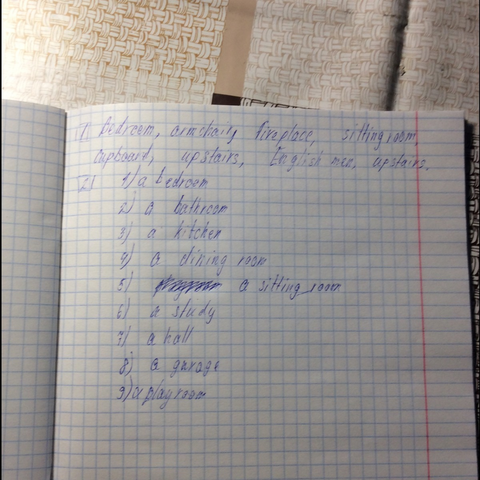 1) Bedroom, armchair, fireplace, sitting room,
cupboard, upstairs, English men, upstairs.
2) 1) a bedroom
2) a bathroom
3) a kitchen
4) a dining room
5) a sitting room
6) a study
7) a hall
8) a garage
9) a playroom